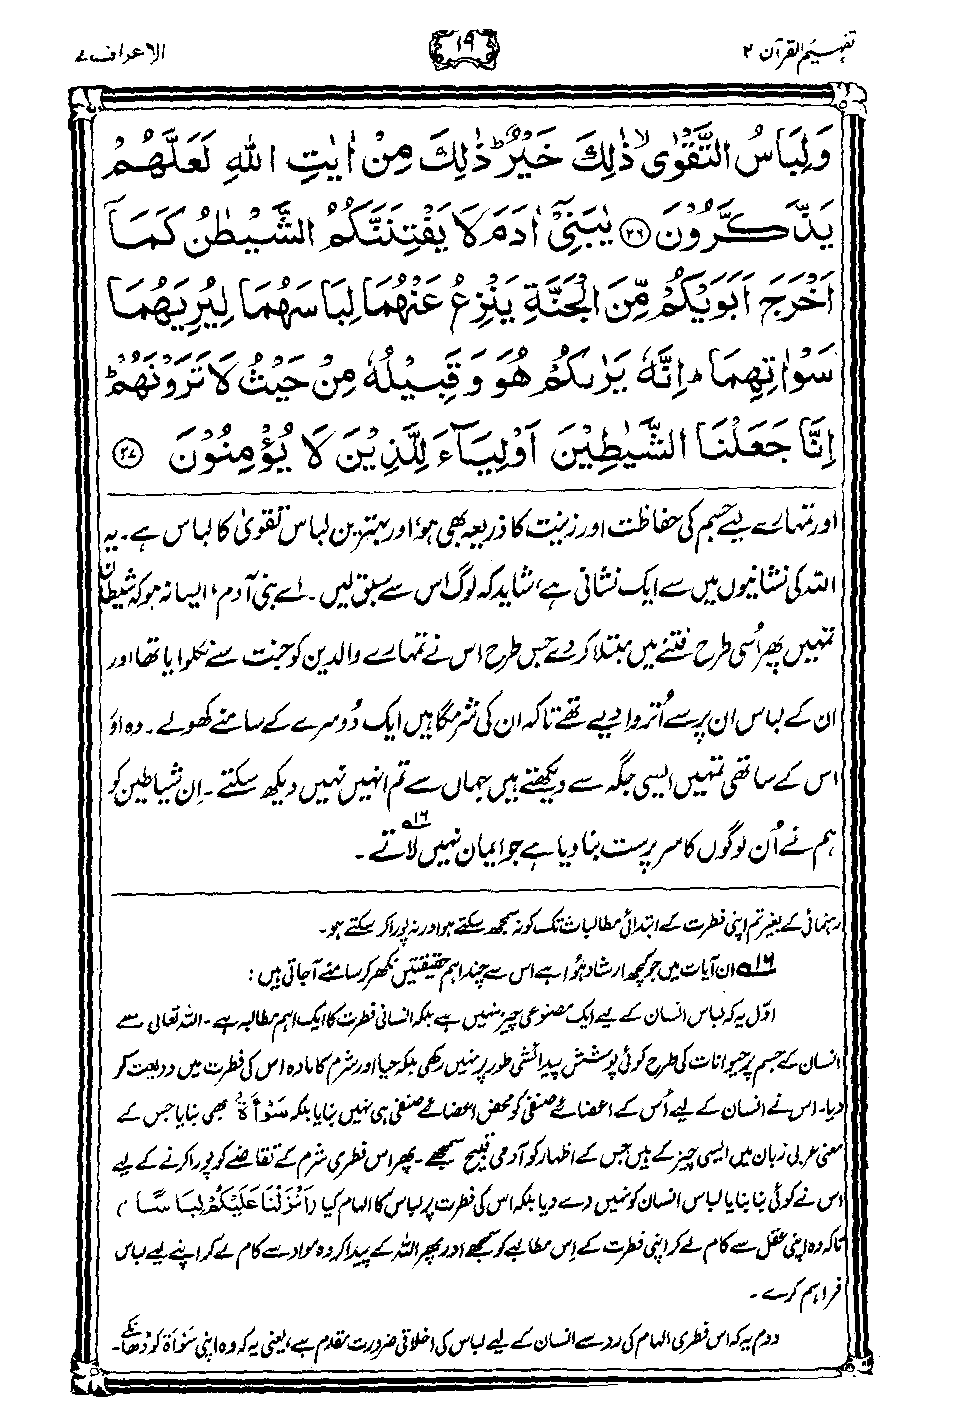 تفہیم القرآن ۲
۱۹
الاعراف ۷
وَلِبَاسُ التَّقْوٰى ۙ ذٰلِكَ خَيْرٌ ؕ ذٰلِكَ مِنْ اٰيٰتِ اللّٰهِ لَعَلَّهُمْ
يَذَّكَّرُوْنَ ﴿۲۶﴾ يٰبَنِيْۤ اٰدَمَ لَا يَفْتِنَنَّكُمُ الشَّيْطٰنُ كَمَاۤ
اَخْرَجَ اَبَوَيْكُمْ مِّنَ الْجَنَّةِ يَنْزِعُ عَنْهُمَا لِبَاسَهُمَا لِيُرِيَهُمَا
سَوْاٰتِهِمَا ؕ اِنَّهٗ يَرٰىكُمْ هُوَ وَقَبِيْلُهٗ مِنْ حَيْثُ لَا تَرَوْنَهُمْ ؕ
اِنَّا جَعَلْنَا الشَّيٰطِيْنَ اَوْلِيَآءَ لِلَّذِيْنَ لَا يُؤْمِنُوْنَ ﴿۲۷﴾
اور تمہارے لیے جسم کی حفاظت اور زینت کا ذریعہ بھی ہو، اور بہترین لباس تقویٰ کا لباس ہے۔ یہ
اللہ کی نشانیوں میں سے ایک نشانی ہے، شاید کہ لوگ اس سے سبق لیں۔ اے بنی آدم، ایسا نہ ہو کہ شیطان
تمہیں پھر اُسی طرح فتنے میں مبتلا کر دے جس طرح اس نے تمہارے والدین کو جنت سے نکلوایا تھا اور
ان کے لباس ان پر سے اُتروا دیے تھے تاکہ ان کی شرمگاہیں ایک دُوسرے کے سامنے کھولے۔ وہ اور
اس کے ساتھی تمہیں ایسی جگہ سے دیکھتے ہیں جہاں سے تم انہیں نہیں دیکھ سکتے۔ اِن شیاطین کو
ہم نے اُن لوگوں کا سرپرست بنا دیا ہے جو ایمان نہیں لاتے۱۶۔
رہنمائی کے بغیر تم اپنی فطرت کے ابتدائی مطالبات تک کو نہ سمجھ سکتے ہو اور نہ پورا کر سکتے ہو۔
۱۶ ان آیات میں جو کچھ ارشاد ہُوا ہے اس سے چند اہم حقیقتیں نکھر کر سامنے آ جاتی ہیں:
اوّل یہ کہ لباس انسان کے لیے ایک مصنوعی چیز نہیں ہے بلکہ انسانی فطرت کا ایک اہم مطالبہ ہے۔ اللہ تعالیٰ نے
انسان کے جسم پر حیوانات کی طرح کوئی پوشش پیدائشی طور پر نہیں رکھی بلکہ حیا اور شرم کا مادہ اس کی فطرت میں ودیعت کر
دیا۔ اس نے انسان کے لیے اُس کے اعضائے صنفی کو محض اعضائے صنفی ہی نہیں بنایا بلکہ سَوْاٰۃ بھی بنایا جس کے
معنی عربی زبان میں ایسی چیز کے ہیں جس کے اظہار کو آدمی قبیح سمجھے۔ پھر اس فطری شرم کے تقاضے کو پورا کرنے کے لیے
اس نے کوئی بنا بنایا لباس انسان کو نہیں دے دیا بلکہ اس کی فطرت پر لباس کا الہام کیا (اَنْزَلْنَا عَلَيْكُمْ لِبَاسًا)
تاکہ وہ اپنی عقل سے کام لے کر اپنی فطرت کے اِس مطالبے کو سمجھے اور پھر اللہ کے پیدا کردہ مواد سے کام لے کر اپنے لیے لباس
فراہم کرے۔
دوم یہ کہ اس فطری الہام کی رو سے انسان کے لیے لباس کی اخلاقی ضرورت مقدم ہے، یعنی یہ کہ وہ اپنی سَوْاَۃ کو ڈھانکے۔